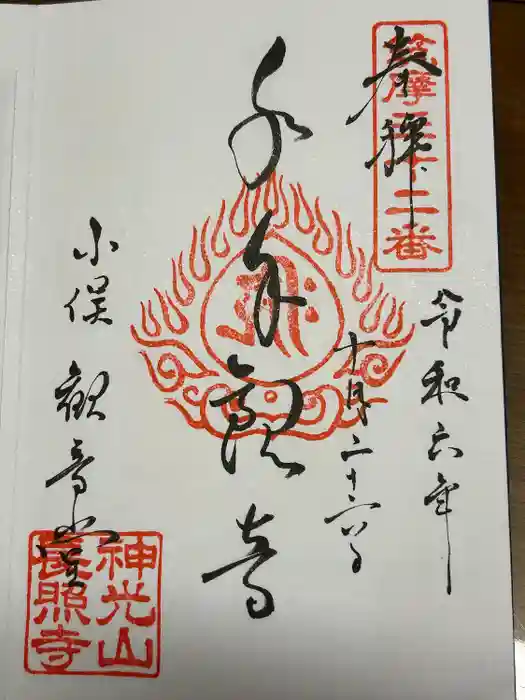 奉拝
令和六年
十月二十六日
千手観音
小俣 観音堂
神光山
長照寺